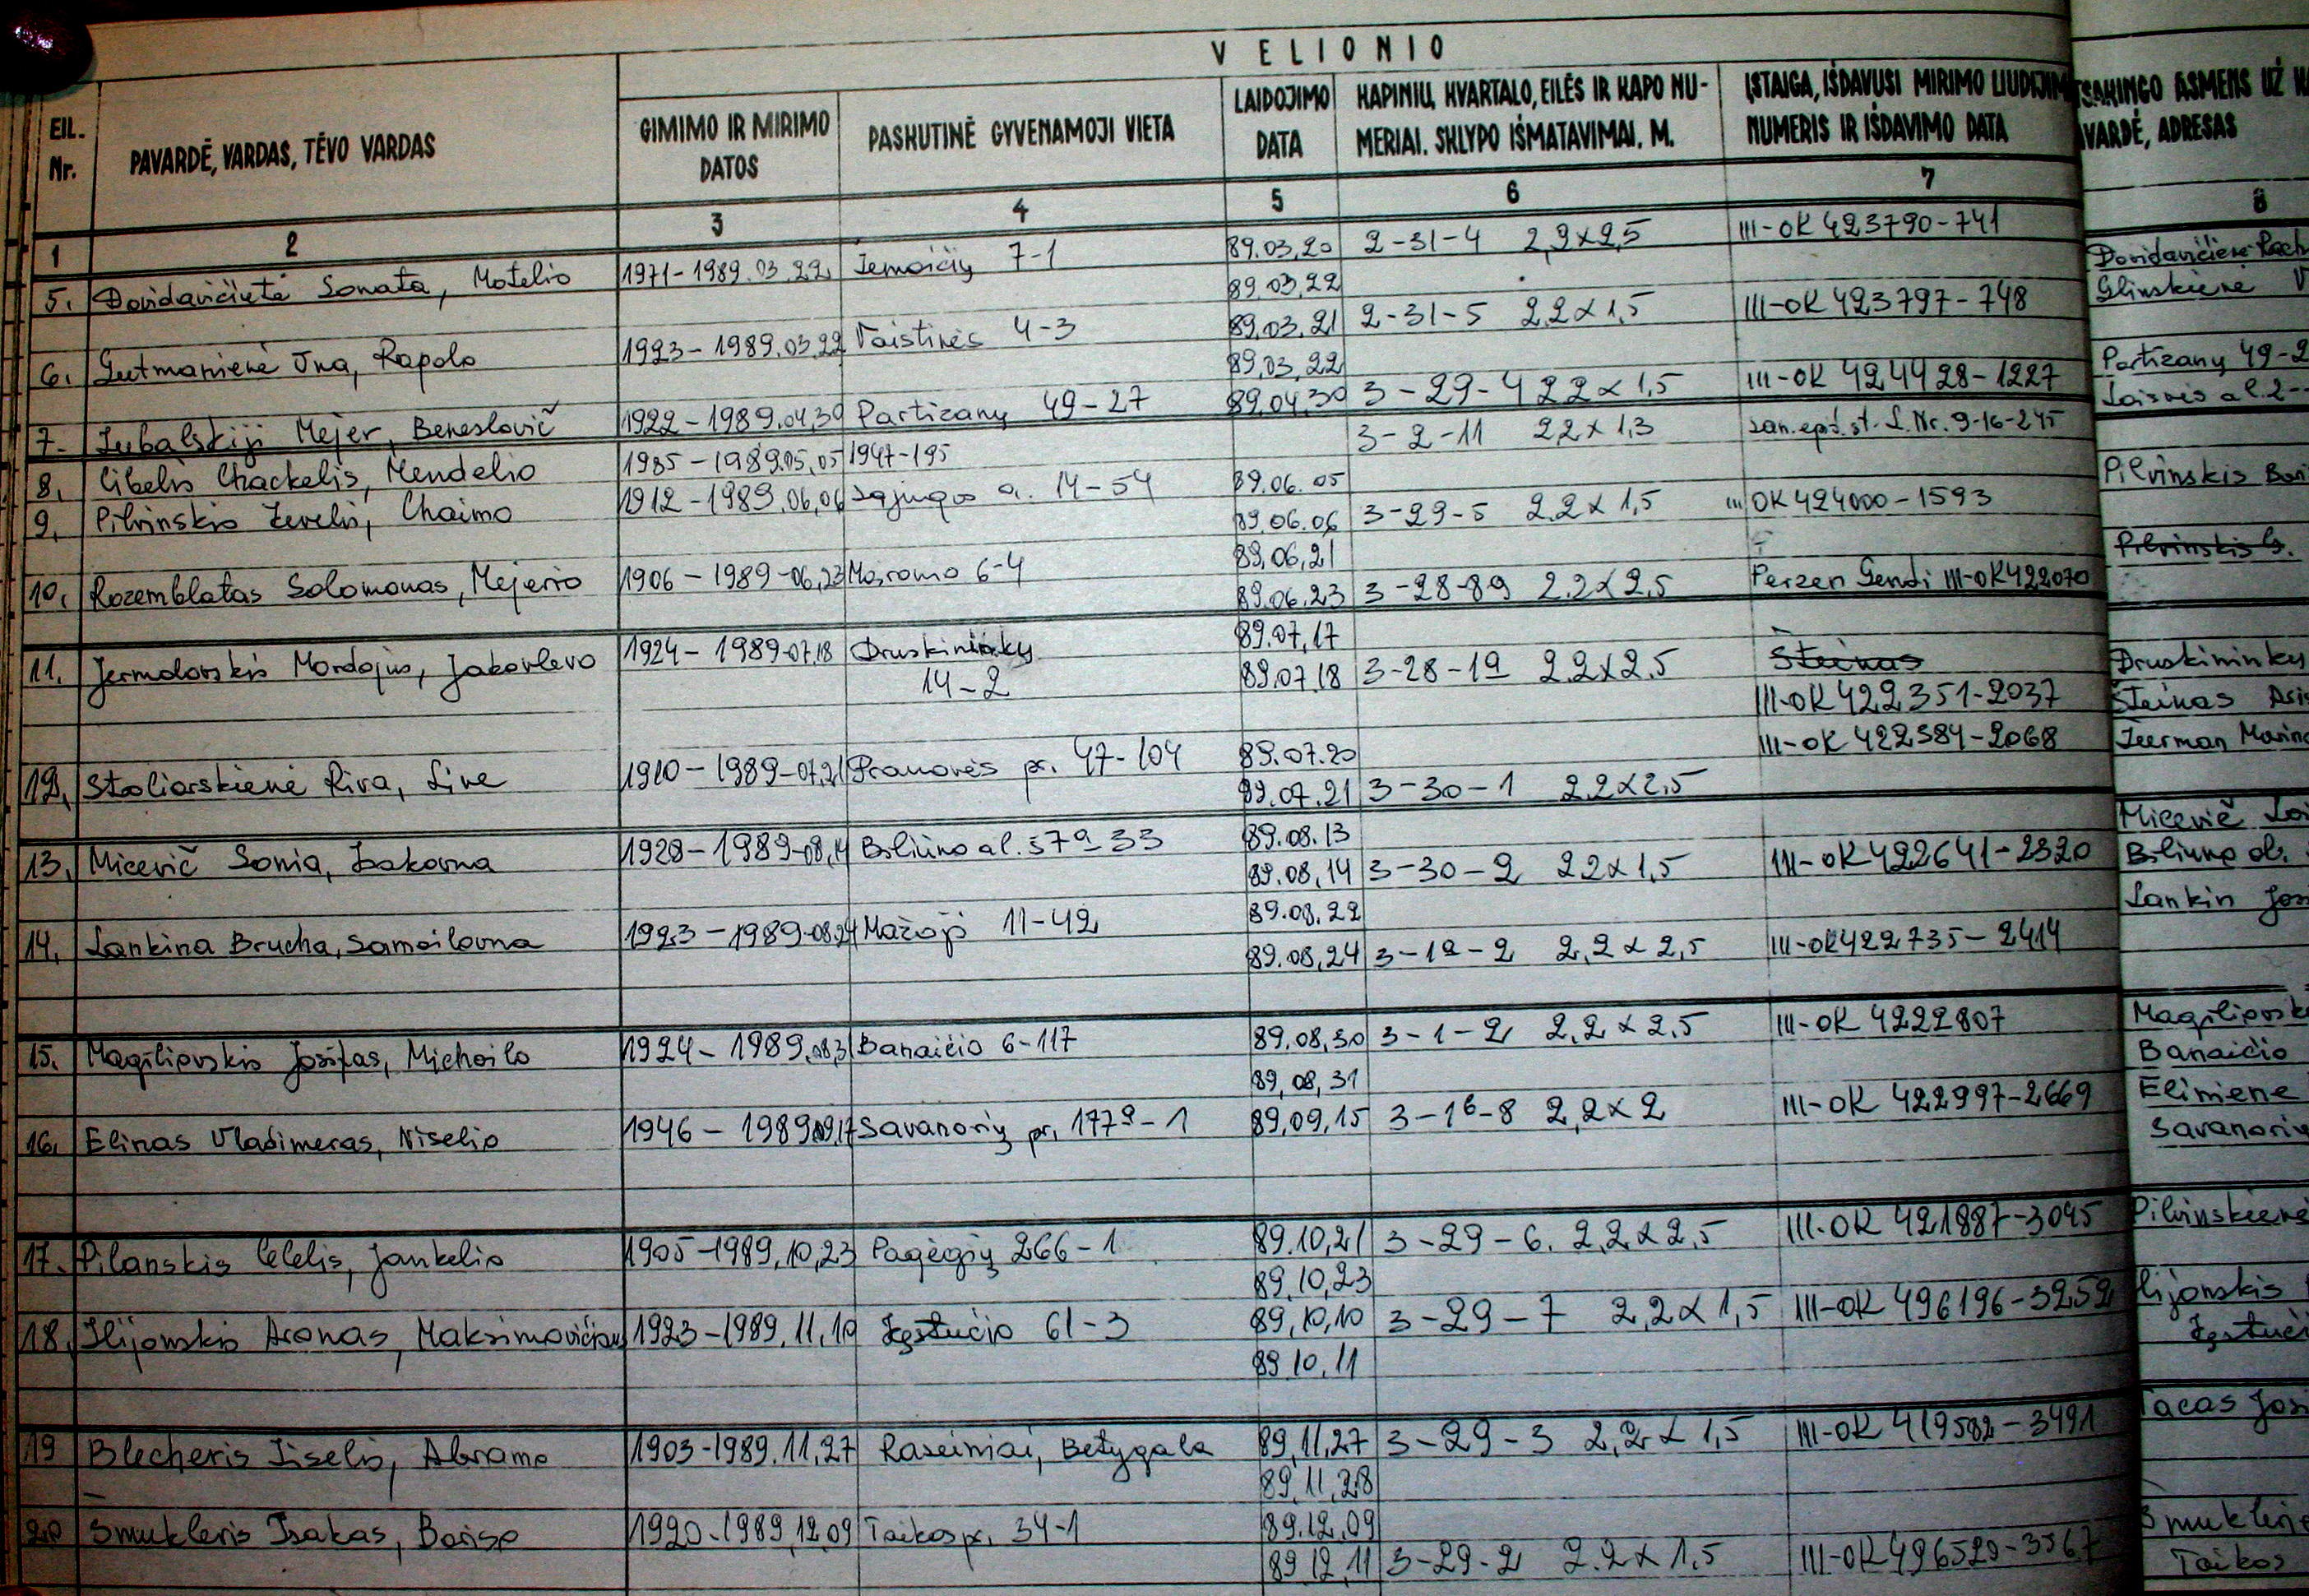 VELIONIO
EIL. Nr.
PAVARDĖ, VARDAS, TĖVO VARDAS
GIMIMO IR MIRIMO DATOS
PASKUTINĖ GYVENAMOJI VIETA
LAIDOJIMO DATA
KAPINIŲ, KVARTALO, EILĖS IR KAPO NU-
MERIAI. SKLYPO IŠMATAVIMAI. M.
ĮSTAIGA, IŠDAVUSI MIRIMO LIUDIJIM
NUMERIS IR IŠDAVIMO DATA
ASMENS UŽ
VARDĖ, ADRESAS
1 2 3 4 5 6 7 8
5. Dovidavičiutė Sonata, Motelio 1971-1989.03.22 Žemaičių 7-1 89.03,20 2-31-4 2,2x2,5 III-OK 423790-741 Dovidavičienė
89.03,22 Glinskienė
6. Gutmanienė Ina, Rapolo 1923-1989.03.22 Vaistinės 4-3 89.03,21 2-31-5 2,2x1,5 III-OK 423797-748
89,03,22 Partizanų 49-2
7. Mejer, Beneslovič 1922-1989.04,30 Partizanų 49-27 89.04.30 3-29-4 2,2x1,5 III-OK 424428-1227 Laisvės al. 2-
8. Cibelis Chackelis, Mendelio 1985-1989.05,05 1947-195 3-2-11 2,2x1,3 san.epid.st. L.Nr. 9-16-245
9. Pilvinskio Chaimo 1912-1989.06,06 Sąjungos a. 14-54 89.06.05 Pilvinskis
89.06.06 3-29-5 2,2x1,5 III OK 424000-1593
89,06,21 Pilvinskis
10. Rozemblatas Solomonas, Mejerio 1906-1989-06,23 Maironio 6-4 89.06.23 3-28-89 2,2x2,5 III-OK422070
89.07,17
11. Jermolovskis Mordojus, Jakovlevo 1924-1989-07,18 Druskininkų 14-2 89.07.18 3-28-19 2,2x2.5 Šteinas Druskininkų
III-OK 422351-2037 Šteinas
III-OK 422584-2068
12. Stoliarskienė Riva, Live 1910-1989-07,21 Pramonės pr. 47-104 89.07.20
89.07.21 3-30-1 2,2x2,5
13. Micevič Sonia, Isakovna 1928-1989-08,14 Biliūno al. 57a 33 89.08.13 Micevič
89.08,14 3-30-2 2,2x1,5 III-OK 422641-2320 Biliūno al.
14. Lankina Brucha, Samoilovna 1923-1989-08,24 Mažoji 11-42 89.08.22 Lankin
89.08,24 3-19-2 2,2x2,5 III-OK422735-2414
15. Magiliovskis Josifas, Michoilo 1924-1989.08,31 Banaičio 6-117 89.08,30 3-1-2 2,2x2.5 III-OK 4222807 Magiliovsk
89,08,31 Banaičio
16. Elinas Vladimeras, Niselio 1946-1989.09,17 Savanorių pr. 177a-1 89,09,15 3-16-8 2,2x2 III-OK 422997-2669 Elinienė
Savanorių
17. Pilanskis Jankelio 1905-1989,10,23 Pagėgių 266-1 89.10,21 3-29-6. 2,2x2,5 III-OK 421887-3045 Pilvinskienė
89,10,23
18. Ilijonskis Aronas, Maksimovičiaus 1923-1989,11,10 Kęstučio 61-3 89,10,10 3-29-7 2,2x1,5 III-OK 496196-3252 Ilijonskis
89.10,11 Kęstuči
19 Blecheris Abramo 1903-1989.11,27 Raseiniai, Betygala 89,11,27 3-29-3 2,2x1,5 III-OK 419582-3491
89,11,28
20 Šmukleris Isakas, Boriso 1920-1989,12,09 Taikos pr. 34-1 89.12,09 Šmukleri
89.12.11 3-29-2 2.2x1,5 III-OK496529-3567 Taikos